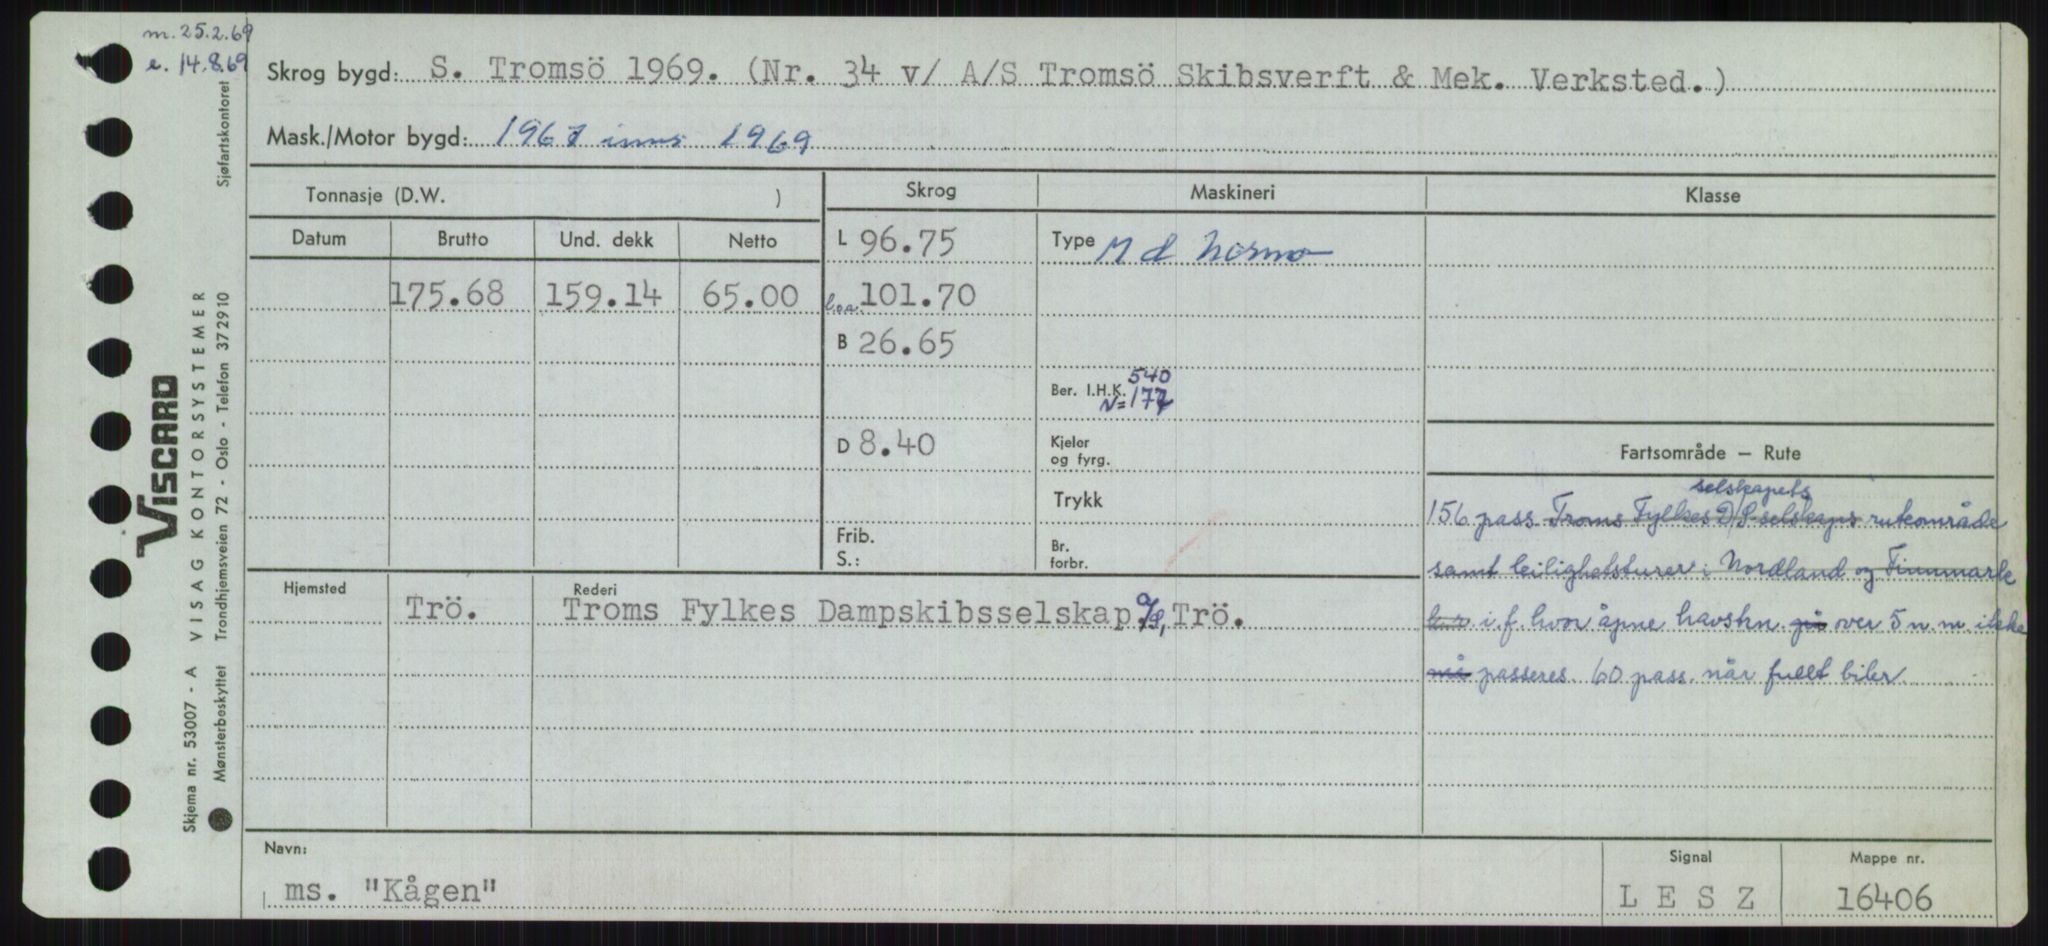 m. 25.2.69
e. 14.8.69
Skrog bygd: S. Tromsö 1969. (Nr. 34 v/ A/S Tromsö Skibsverft & Mek. Verksted.)
Mask./Motor bygd: 1967 inns 1969
Tonnasje (D.W. )
Skrog Maskineri Klasse
Datum Brutto Und. dekk Netto
L 96.75 Type M d Normo
175.68 159.14 65.00 loa. 101.70
B 26.65
540
Ber. I.H.K. N=177
D 8.40 Kjeler
og fyrg.
Fartsområde – Rute
Trykk
Frib.
S.: Br.
forbr.
selskapets
156 pass Troms Fylkes D/S selskaps ruteområde
samt leilighetsturer i Nordland og Finnmark
i.f. hvor åpne havstrn. på over 5 n. m. ikke
må passeres. 60 pass. når fullt biler
Hjemsted Rederi
Trö. Troms Fylkes Dampskibsselskap a/s, Trö.
Navn: Signal Mappe nr.
ms. "Kågen" L E S Z 16406
Sjøfartskontoret
VISCARD
VISAG KONTORSYSTEMER
Trondhjemsveien 72 - Oslo - Telefon 372910
Skjema nr. 53007 - A
Mønsterbeskyttet